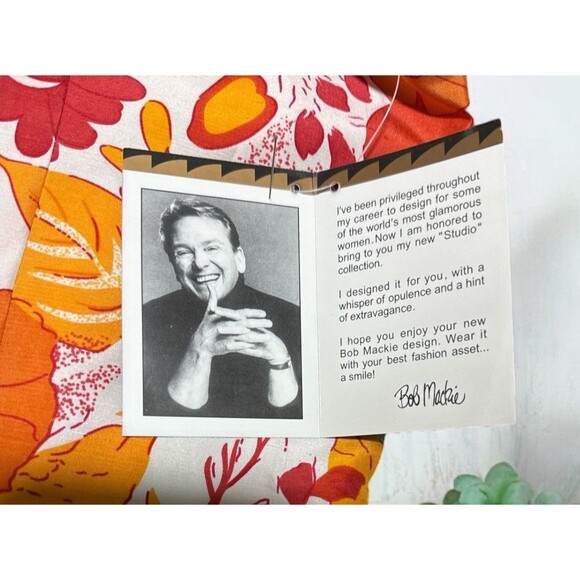 I've been privileged throughout
my career to design for some
of the world's most glamorous
women. Now I am honored to
bring to you my new "Studio"
collection.
I designed it for you, with a
whisper of opulence and a hint
of extravagance.
I hope you enjoy your new
Bob Mackie design. Wear it
with your best fashion asset...
a smile!
Bob Mackie